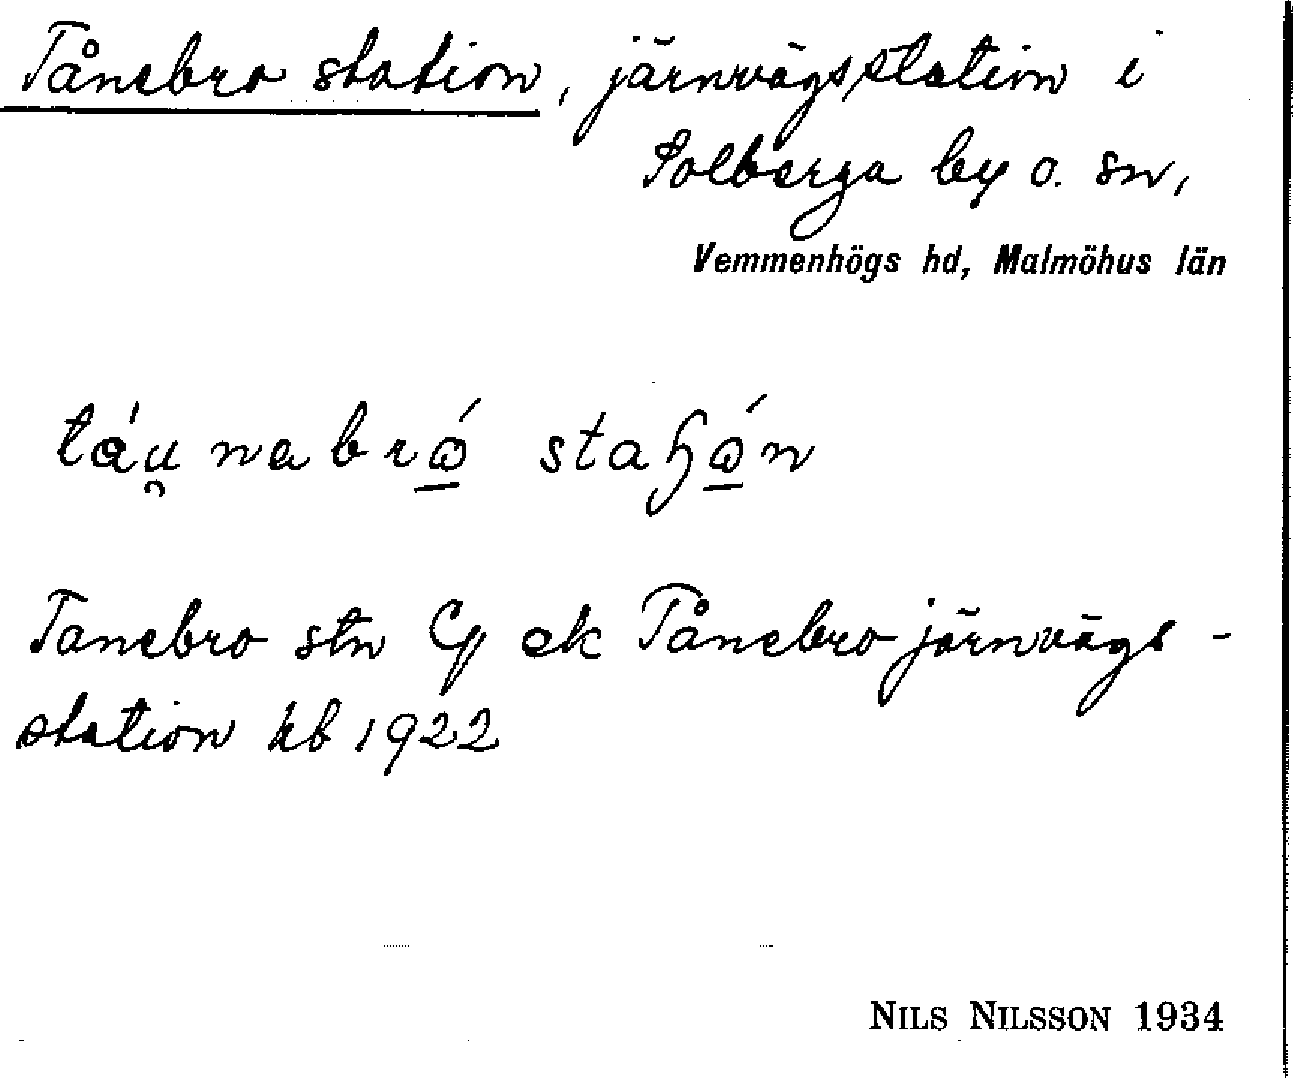 Tånebro station, järnvägsstation i
Solberga by o. sn,
Vemmenhögs hd, Malmöhus län
Tanebro stn ek Tånebro järnvägs-
station kb 1922
NILS NILSSON 1934